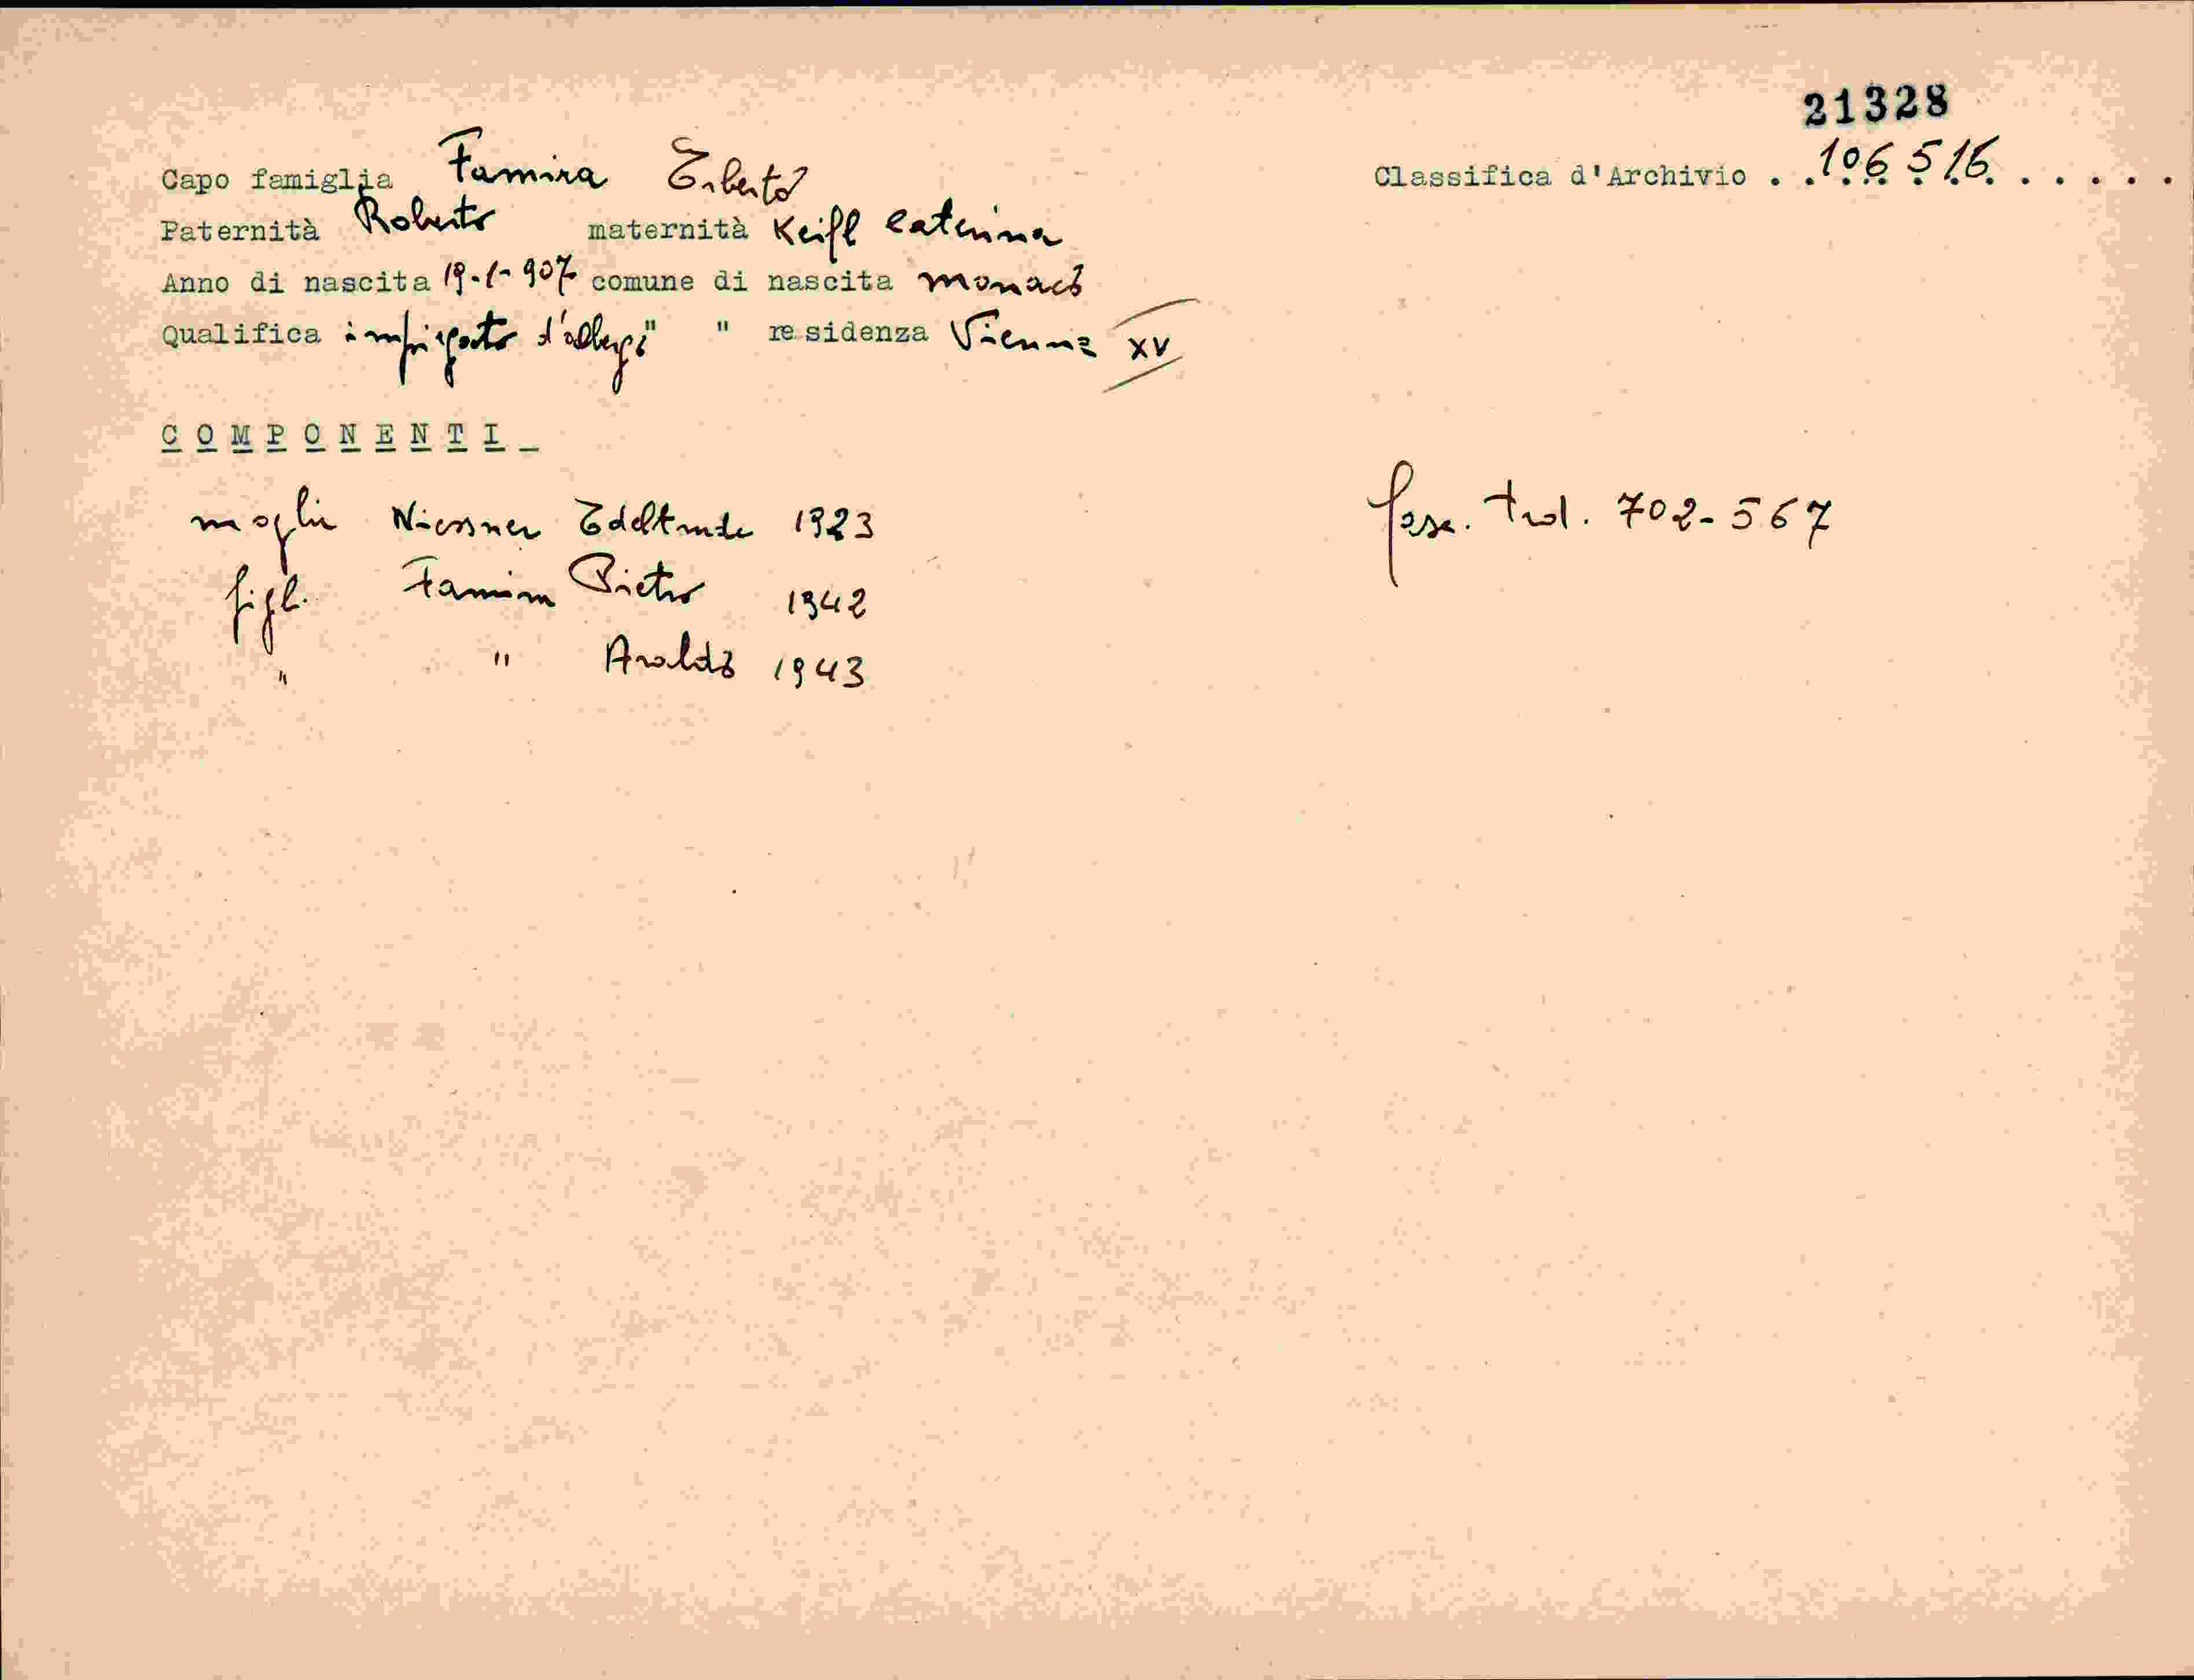 21328
Capo famiglia Famira Erberto
Classifica d'Archivio . . 106 516 . . . . . .
Paternità Roberto maternità Keifl Caterina
Anno di nascita 19-1-907 comune di nascita Monaco
Qualifica impiegato d'albergo " " residenza Vienna XV
COMPONENTI
moglie Niessner Edeltrude 1923
fasc. trad. 702-567
figli Famira Pietro 1942
" " Araldo 1943